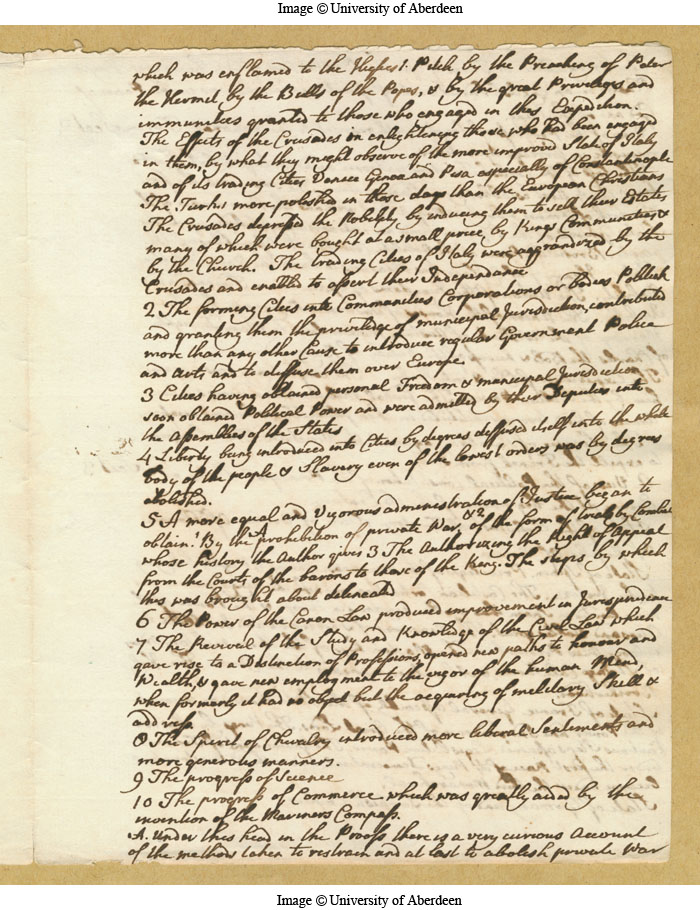 Image © University of Aberdeen
which was enflamed to the Highest Pitch by the Preaching of Peter
the Hermit by the Bulls of the Popes, & by the great Priviledges and
immunities granted to those who engaged in this Expedition.
The Effects of the Crusades in enlightening those who had been engaged
in them, by what they might observe of the more improved State of Italy
and of its trading Cities Venice Genoa and Pisa especially of Constantinople
The Turks more polished in those days than the European Christians
The Crusades depressd the Nobility by inducing them to sell their Estates
many of which were bought at a small price by Kings Communities &
by the Church. The trading Cities of Italy were aggrandized by the
Crusades and enabled to assert their Independance
2 The forming Cities into Communities Corporations or bodies Politick
and granting them the priviledge of municipal Jurisdiction, contributed
more than any other Cause to introduce regular Government Police
and Arts and to diffuse them over Europe
3 Cities having obtained personal Freedom & municipal Jurisdiction
soon obtained Political Power and were admitted by their Deputies into
the Assemblies of the States
4 Liberty being introduced into Cities by degrees diffused itself into the whole
body of the people & Slavery even of the lowest orders was by degrees
abolished.
5 A more equal and Vigorous administration of Justice began to
obtain. 1 By the prohibition of private War, & 2 of the form of trials by Combat
whose history the Author gives 3 The Authorizing the Right of Appeal
from the Courts of the barons to those of the King. The steps by which
this was brought about delineated
6 The Power of the Canon Law produced improvement in Jurisprudence
7 The Revival of the Study and Knowledge of the Civil Law which
gave rise to a Distinction of Professions, opened new paths to honour and
Wealth, & gave new employment to the vigor of the human Mind,
when formerly it had no object but the acquiring of military Skill &
address
8 The Spirit of Chivalry introduced more liberal Sentiments and
more generous manners.
9 The progress of Science
10 The progress of Commerce which was greatly aided by the
invention of the Mariners Compass.
A. Under this head in the Proofs there is a very curious Account
of the methods taken to restrain and at last to abolish private War
Image © University of Aberdeen